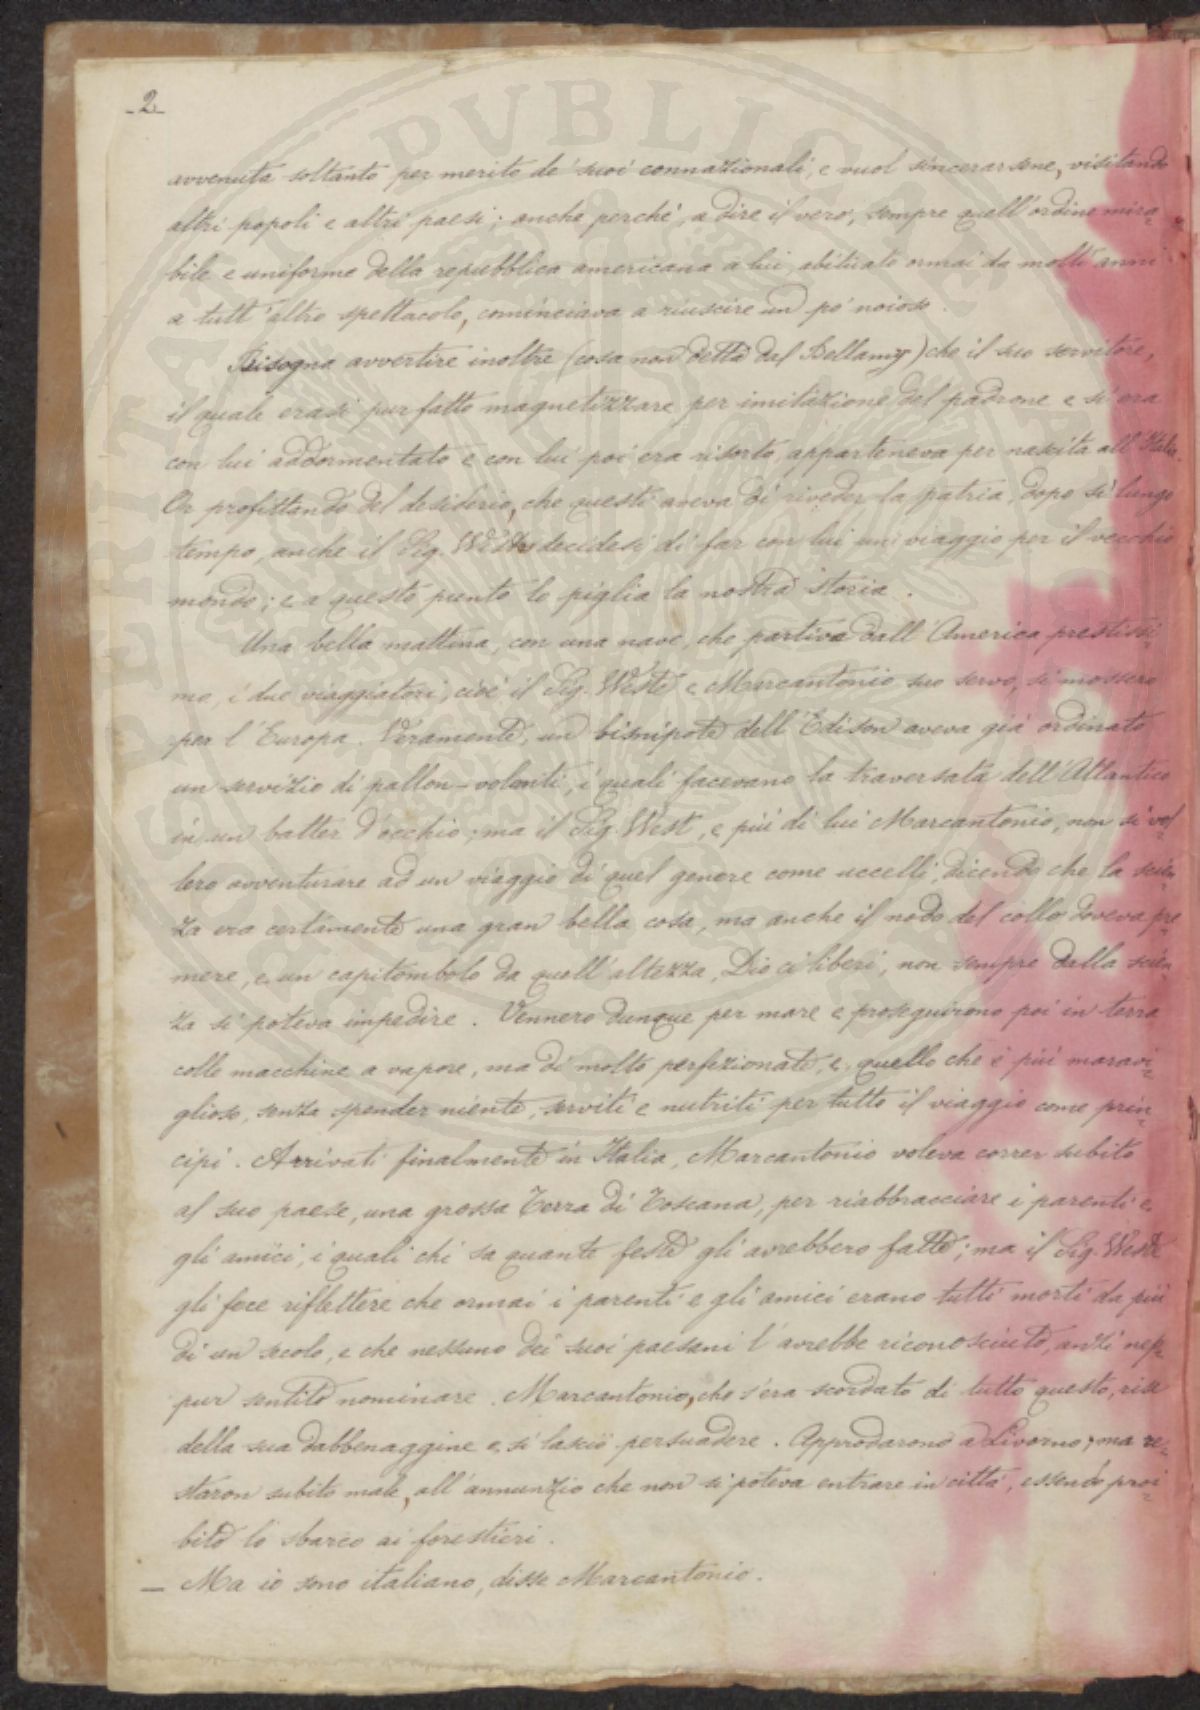 -2-
avvenuta soltanto per merito de' suoi connazionali, e vuol sincerarsene, visitando
altri popoli e altri paesi; anche perchè, a dire il vero, sempre quell'ordine mira=
bile e uniforme della repubblica americana a lui, abituato ormai da molti anni
a tutt'altro spettacolo, cominciava a riuscire un po' noioso.
Bisogna avvertire inoltre (cosa non detta dal Bellamy) che il suo servitore,
il quale erasi pur fatto magnetizzare per imitazione del padrone e si era
con lui addormentato e con lui poi era risorto, apparteneva per nascita all'Italia.
Or profittando del desiderio, che questi aveva di riveder la patria, dopo sì lungo
tempo, anche il Sig. West decidesi di far con lui un viaggio per il vecchio
mondo; e a questo punto lo piglia la nostra storia.
Una bella mattina, con una nave, che partiva dall'America prestissi=
mo, i due viaggiatori, cioè il Sig. West e Marcantonio suo servo, si mossero
per l'Europa. Veramente, un bisnipote dell'Edison aveva già ordinato
un servizio di pallon-volanti, i quali facevano la traversata dell'Atlantico
in un batter d'occhio; ma il Sig. West, e più di lui Marcantonio, non si vol=
lero avventurare ad un viaggio di quel genere come uccelli, dicendo che la scien=
za era certamente una gran bella cosa, ma anche il nodo del collo doveva pre=
mere, e un capitombolo da quell'altezza, Dio ci liberi, non sempre dalla scien=
za si poteva impedire. Vennero dunque per mare e proseguirono poi in terra
colle macchine a vapore, ma di molto perfezionate, e, quello che è più maravi=
glioso, senza spender niente, serviti e nutriti per tutto il viaggio come prin=
cipi. Arrivati finalmente in Italia, Marcantonio voleva correr subito
al suo paese, una grossa Terra di Toscana, per riabbracciare i parenti e
gli amici, i quali chi sa quante feste gli avrebbero fatte; ma il Sig. West
gli fece riflettere che ormai i parenti e gli amici erano tutti morti da più
di un secolo, e che nessuno dei suoi paesani l'avrebbe riconosciuto, anzi nep=
pur sentito nominare. Marcantonio, che s'era scordato di tutto questo, rise
della sua dabbenaggine e si lasciò persuadere. Approdarono a Livorno; ma re=
staron subito male, all'annunzio che non si poteva entrare in città, essendo proi=
bito lo sbarco ai forestieri.
— Ma io sono italiano, disse Marcantonio.